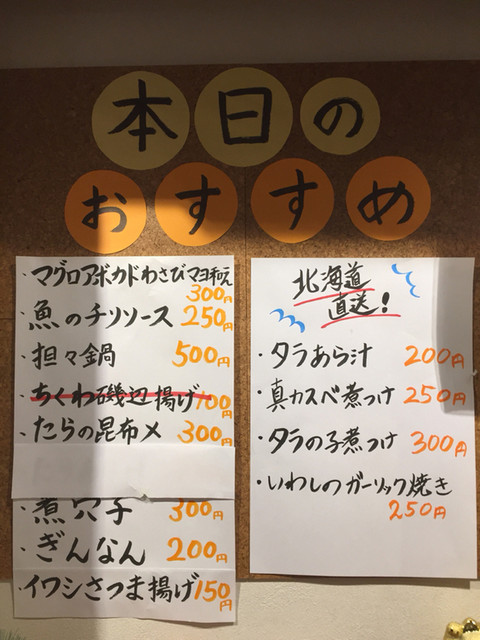 本日の
おすすめ
・マグロアボカドわさびマヨ和え
300円
・魚のチリソース 250円
・担々鍋 500円
・ちくわ磯辺揚げ 100円
・たらの昆布〆 300円
・煮穴子 300円
・ぎんなん 200円
・イワシさつま揚げ 150円
北海道
直送!
・タラあら汁 200円
・真カスベ煮つけ 250円
・タラの子煮つけ 300円
・いわしのガーリック焼き
250円